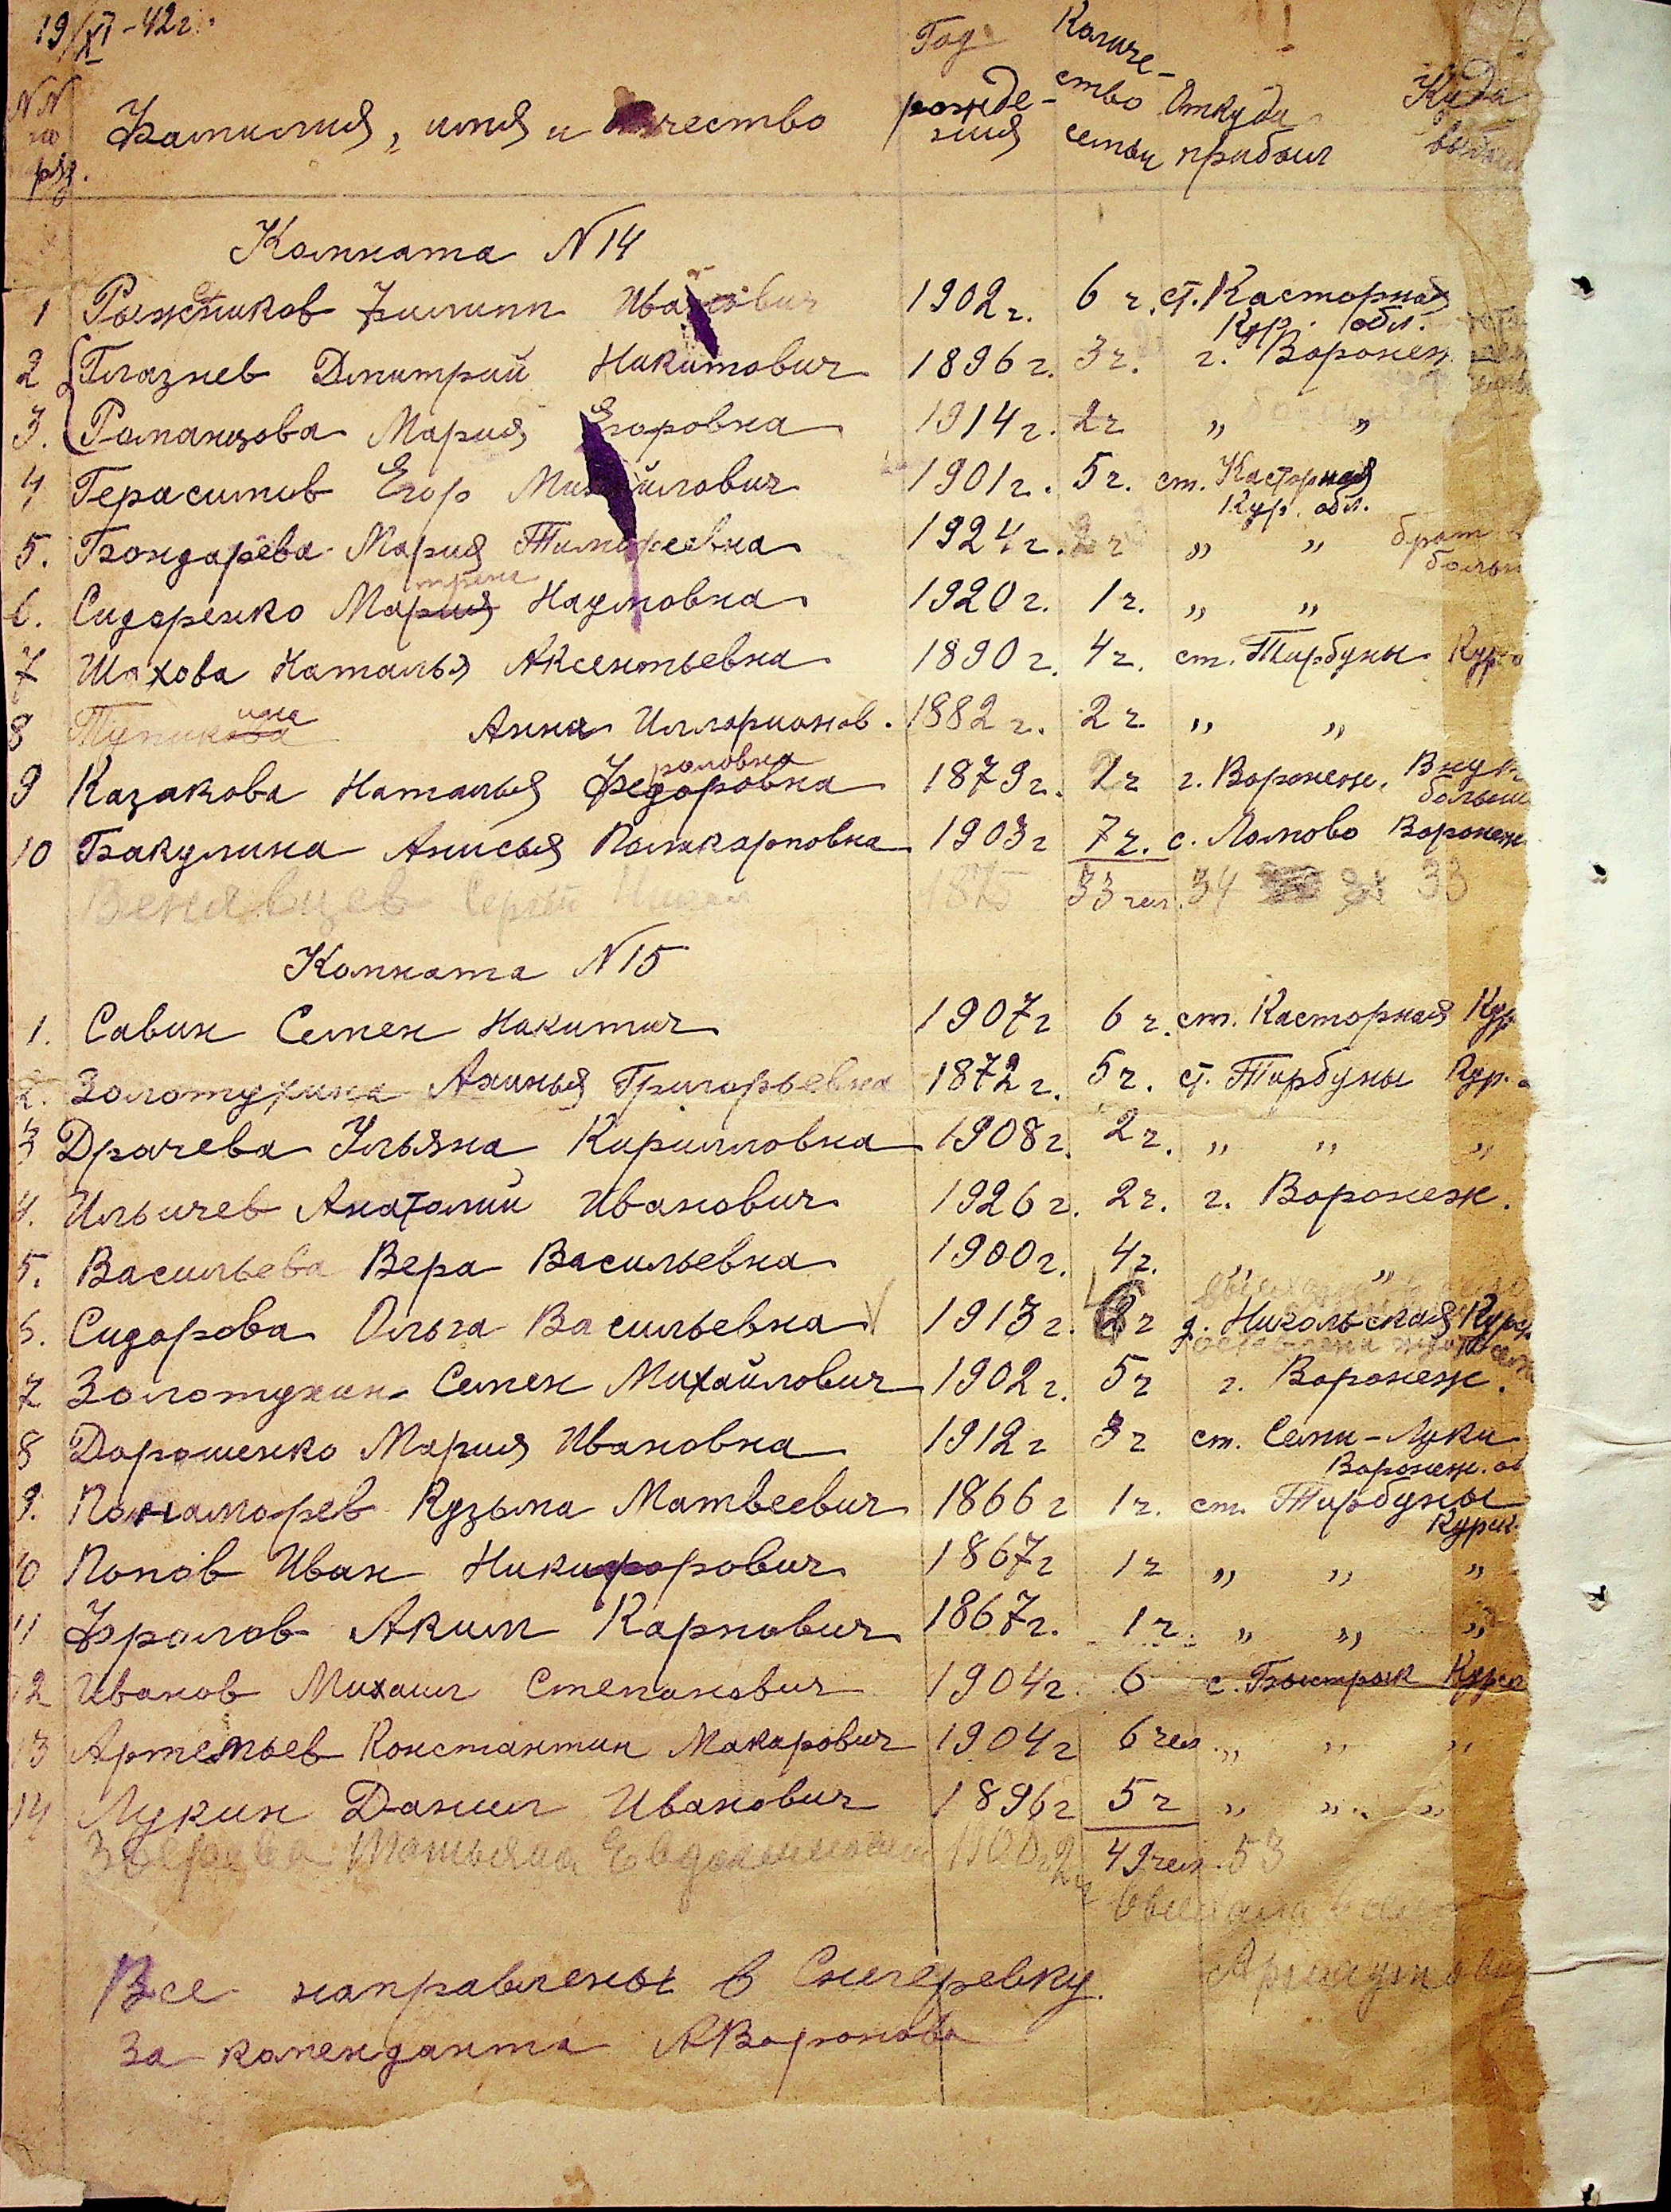 19/XI-42г.
NN по ряд. Фамилия, имя и отчество Год рожде-ния Количе-ство семьи Откуда прибыл Куда
Комната N 14
1 Филипп Иванович 1902 г. 6 ч. ст. Касторная
Кур. обл.
2 Глазнев Дмитрий Никитович 1896 г. 3 ч. г. Воронеж
3. Романцова Мария Егоровна 1914 г. 2 ч „ „
4 Герасимов Егор Михайлович 1901 г. 5 ч. ст. Касторная
Кур. обл.
5. Бондарева Мария Тимофеевна 1924 г. 2 ч „ „ брат
больн
6. Сидоренко Мария трена Наумовна 1920 г. 1 ч. „ „
7 Шахова Наталья Аксентьевна 1890 г. 4 ч. ст. Тирбуны Кур
8 Тупикова ина Анна Илларионов. 1882 г. 2 ч „ „
роловна
9 Казакова Наталья Федоровна 1879 г. 2 ч г. Воронеж. Внук
больн
10 Бакулина Анисья Поликарповна 1903 г 7 ч. с. Ломово Воронеж
1875 33 чел. 34 33
Комната N 15
1. Савин Семен Никитич 1907 г 6 ч. ст. Касторная Кур
2. Золотухина Аксинья Григорьевна 1872 г. 5 ч. ст. Тирбуны Кур.
3 Драчева Ульяна Кирилловна 1908 г. 2 ч. „ „ „
4. Ильичев Анатолий Иванович 1926 г. 2 ч. г. Воронеж.
5. Васильева Вера Васильевна 1900 г. 4 ч. „ „
6. Сидорова Ольга Васильевна V 1913 г. 2 ч д. Никольская Курс
7 Золотухин Семен Михайлович 1902 г. 5 ч г. Воронеж.
8 Дорошенко Мария Ивановна 1912 г 3 ч ст. Семи-Луки
Воронеж. об
9. Понаморев Кузьма Матвеевич 1866 г 1 ч. ст. Тирбуны
Курск.
10 Попов Иван Никифорович 1867 г 1 ч „ „ „
11 Фролов Аким Карпович 1867 г. 1 ч. „ „ „
12 Иванов Михаил Степанович 1904 г. 6 с. Быстрик Курск
13 Артемьев Константин Макарович 1904 г 6 чел. „ „ „
14 Лукин Данил Иванович 1896 г 5 ч „ „ „
Татьяна Евдокимовна 49 чел. 53
Все направлены в Снегеревку.
За коменданта АВоронова